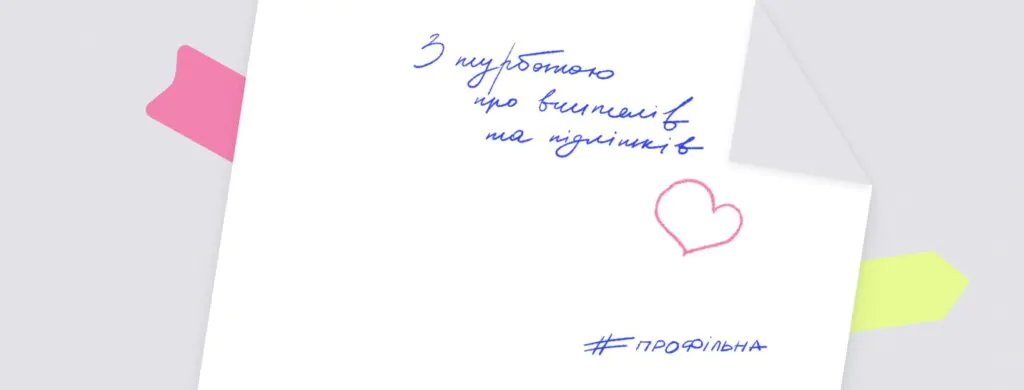 З турботою
про вчителів
та підлітків
#ПРОФІЛЬНА